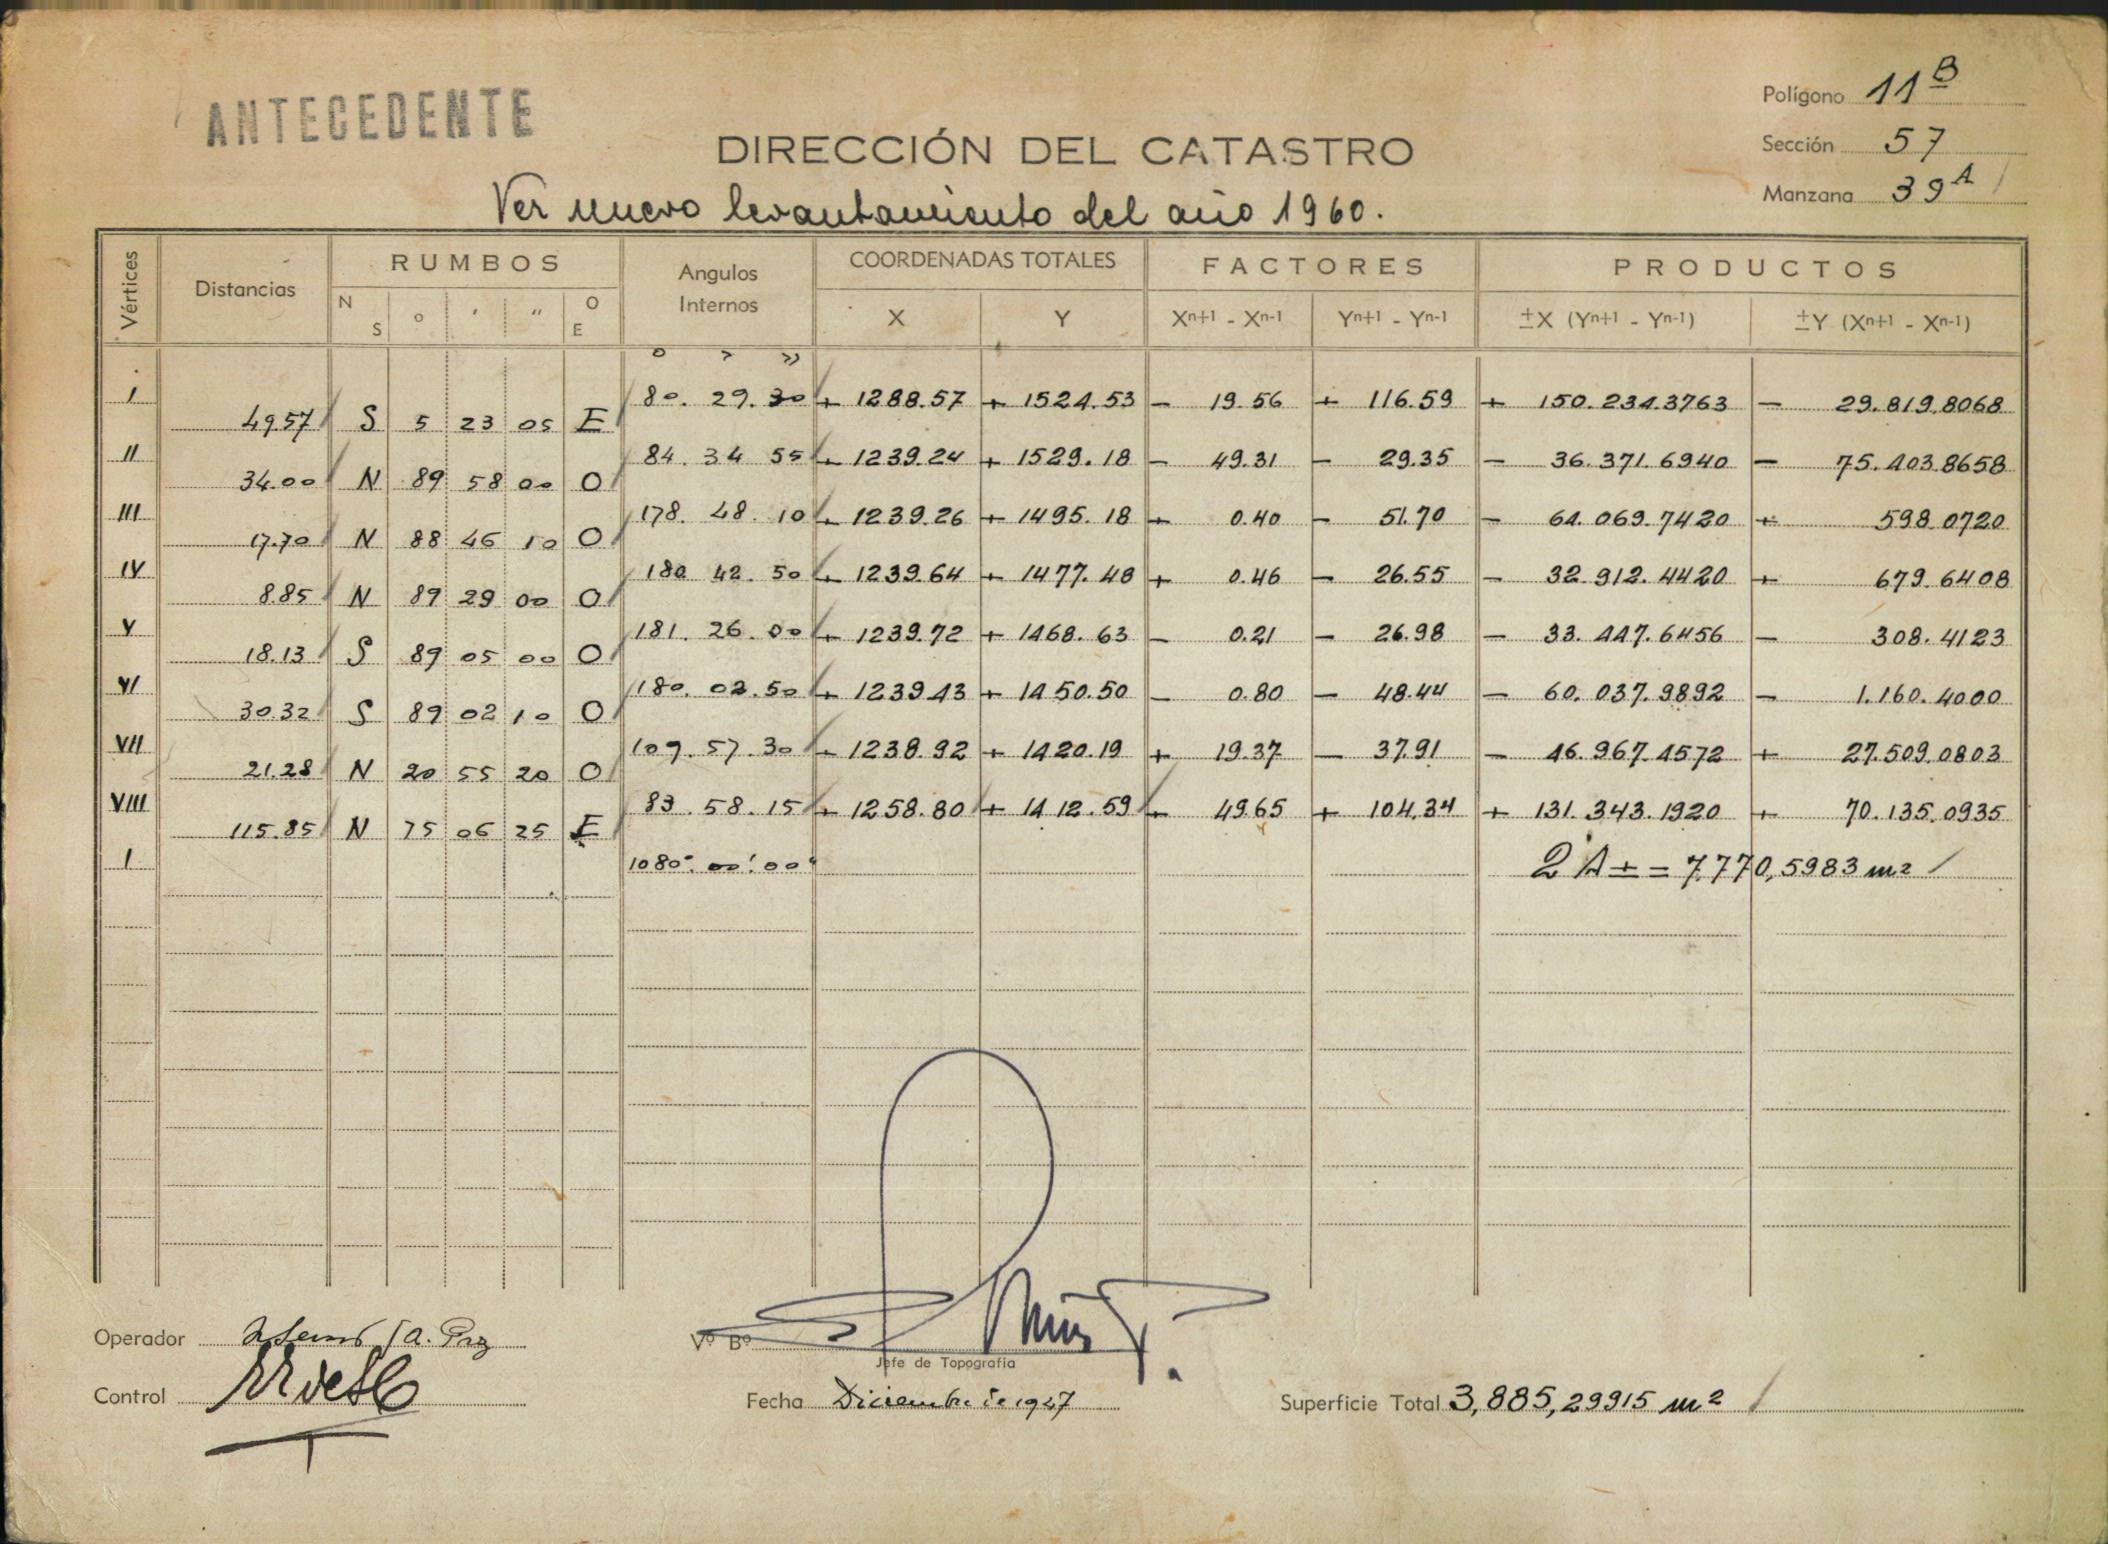 ANTECEDENTE
Polígono 11 B
DIRECCIÓN DEL CATASTRO
Sección 57
Manzana 39 A
Ver nuevo levantamiento del año 1960.
Vértices Distancias RUMBOS Angulos Internos COORDENADAS TOTALES FACTORES PRODUCTOS
N S o ' " O E X Y Xn+1 - Xn-1 Yn+1 - Yn-1 ±X (Yn+1 - Yn-1) ±Y (Xn+1 - Xn-1)
o ' "
I 80. 29. 30 + 1288.57 + 1524.53 - 19.56 + 116.59 + 150.234.3763 - 29.819.8068
49.57 S 5 23 05 E
II 84. 34 55 + 1239.24 + 1529.18 - 49.31 - 29.35 - 36.371.6940 - 75.403.8658
34.00 N 89 58 00 O
III 178. 48. 10 + 1239.26 + 1495.18 + 0.40 - 51.70 - 64.069.7420 + 598.0720
17.70 N 88 46 10 O
IV 180 42. 50 + 1239.64 + 1477.48 + 0.46 - 26.55 - 32.912.4420 + 679.6408
8.85 N 89 29 00 O
V 181. 26. 00 + 1239.72 + 1468.63 - 0.21 - 26.98 - 33.447.6456 - 308.4123
18.13 S 89 05 00 O
VI 180. 02. 50 + 1239.43 + 1450.50 - 0.80 - 48.44 - 60.037.9892 - 1.160.4000
30.32 S 89 02 10 O
VII 109. 57. 30 + 1238.92 + 1420.19 + 19.37 - 37.91 - 46.967.4572 + 27.509.0803
21.28 N 20 55 20 O
VIII 83. 58. 15 + 1258.80 + 1412.59 + 49.65 + 104.34 + 131.343.1920 + 70.135.0935
115.85 N 75 06 25 E
I 1080°. 00'. 00" 2 A ± = 7.770,5983 m2
Operador
Vº Bº
Jefe de Topografía
Control
Fecha Diciembre de 1947
Superficie Total 3,885,29915 m2